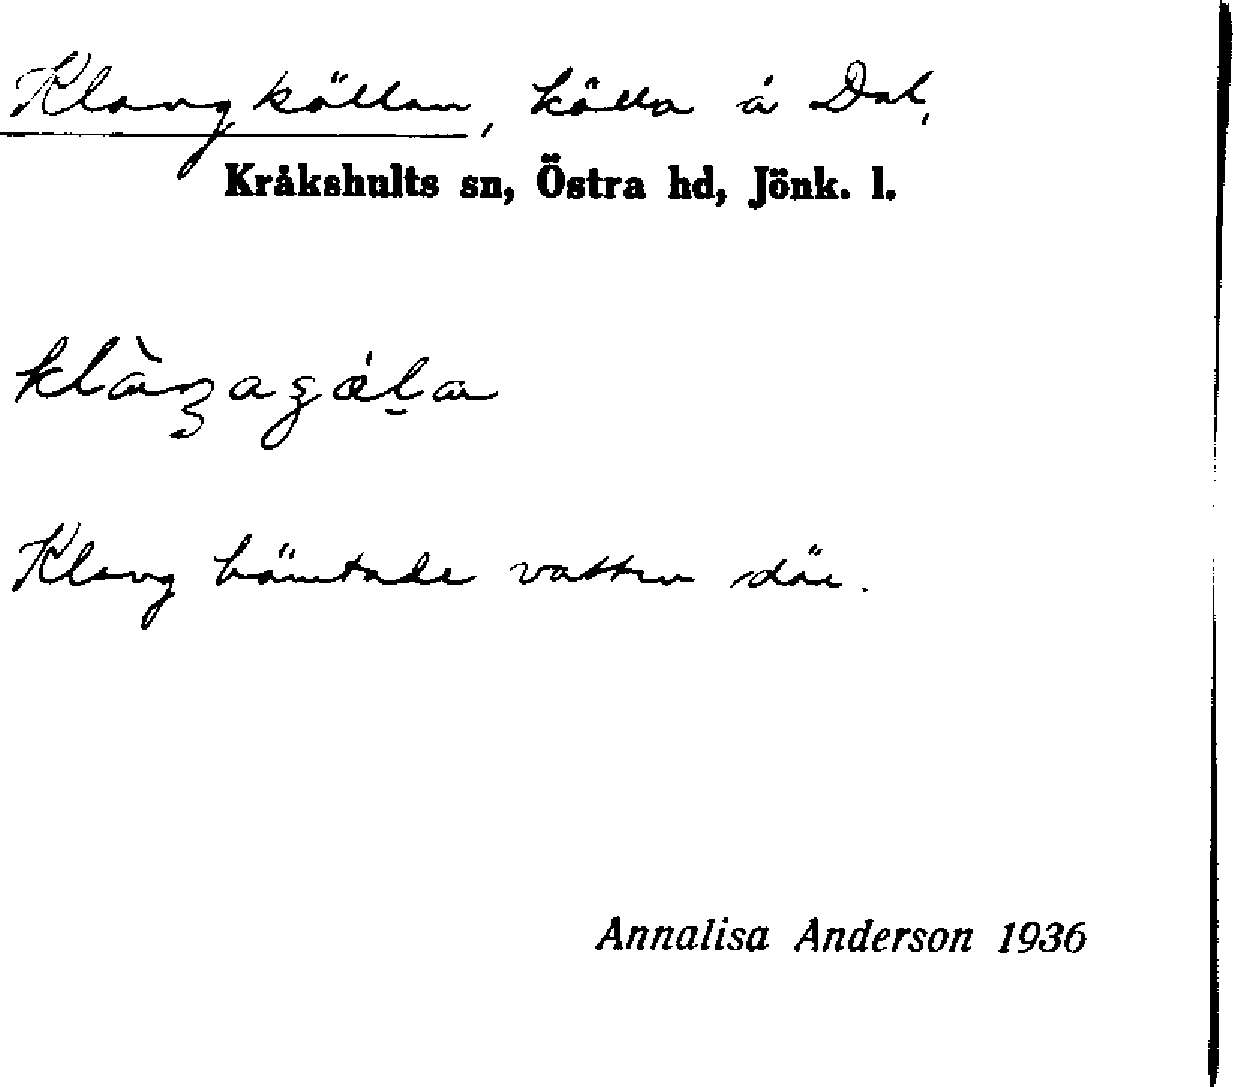 Klangkällan, källa å Dal,
Kråkshults sn, Östra hd, Jönk. l.
Klang hämtade vatten där.
Annalisa Anderson 1936